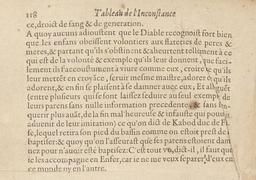 118 Tableau de l'Inconstance
ce, droict de sang & de generation.
A quoy aucuns adioustent que le Diable recognoist fort bien
que les enfans obeissent volontiers aux flateries de peres &
meres, & partant qu'ils s'obstinent & aheurtent tellement à ce
qui est de la volonté & exemple qu'ils leur donnent, que faci-
lement ils s'accoustument à viure comme eux, croire ce qu'ils
leur mettét en croyāce, seruir mesme maistre, adorer ce qu'ils
adorent, & en fin se plaisent à se damner auec eux, Et allegués
(entre plusieurs qui se sont laissez seduire au seul exemple de
leurs parens sans nulle information precedente, & sans s'en-
querir plus auāt, de la fin mal'heureuse & infauste qui pouuoit
aduenir de leur imitation) ce qu'on dict de Kabod duc de Fri-
se, lequel retira son pied du bassin comme on estoit prest de le
baptiser: & quoy qu'on l'asseurast que ses parens estoient dam-
nez pour n'auoir esté baptisez. C'est tout vn, dict-il, il faut que
ie les accompagne en Enfer, car ie ne me veux separer d'eux en
ce monde ny en l'autre.